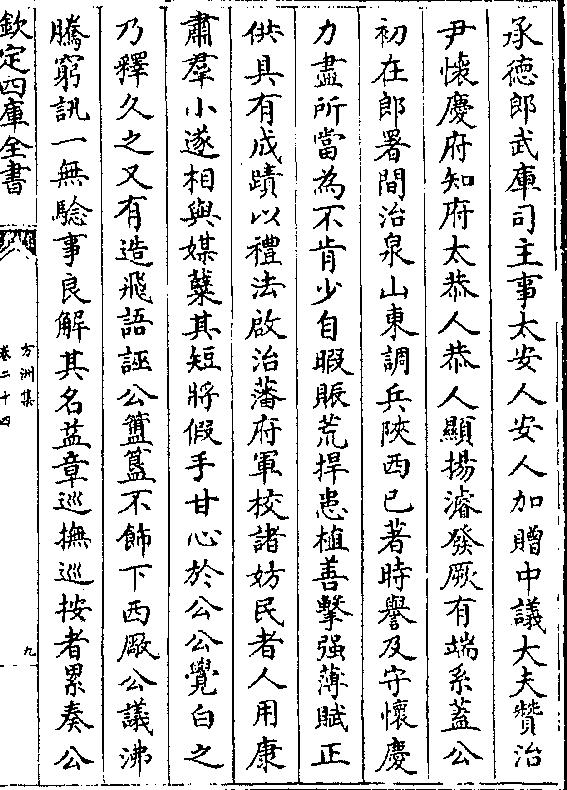 承德郎武庫司主事太安人安人加贈中議大夫贊治
尹懷慶府知府太恭人恭人顯揚濬發厥有端系蓋公
初在郎署間治泉山東調兵陜西已著時譽及守懷慶
力盡所當為不肯少自暇賑荒捍患植善擊强薄賦正
供具有成蹟以禮法啟治藩府軍校諸妨民者人用康
肅羣小遂相與媒糵其短將假手甘心於公公覺白之
乃釋久之又有造飛語誣公簠簋不飾下西厰公議沸
騰窮訊一無驗事良解其名益章巡撫巡按者累奏公
欽定四庫全書
方洲集
卷二十四
九